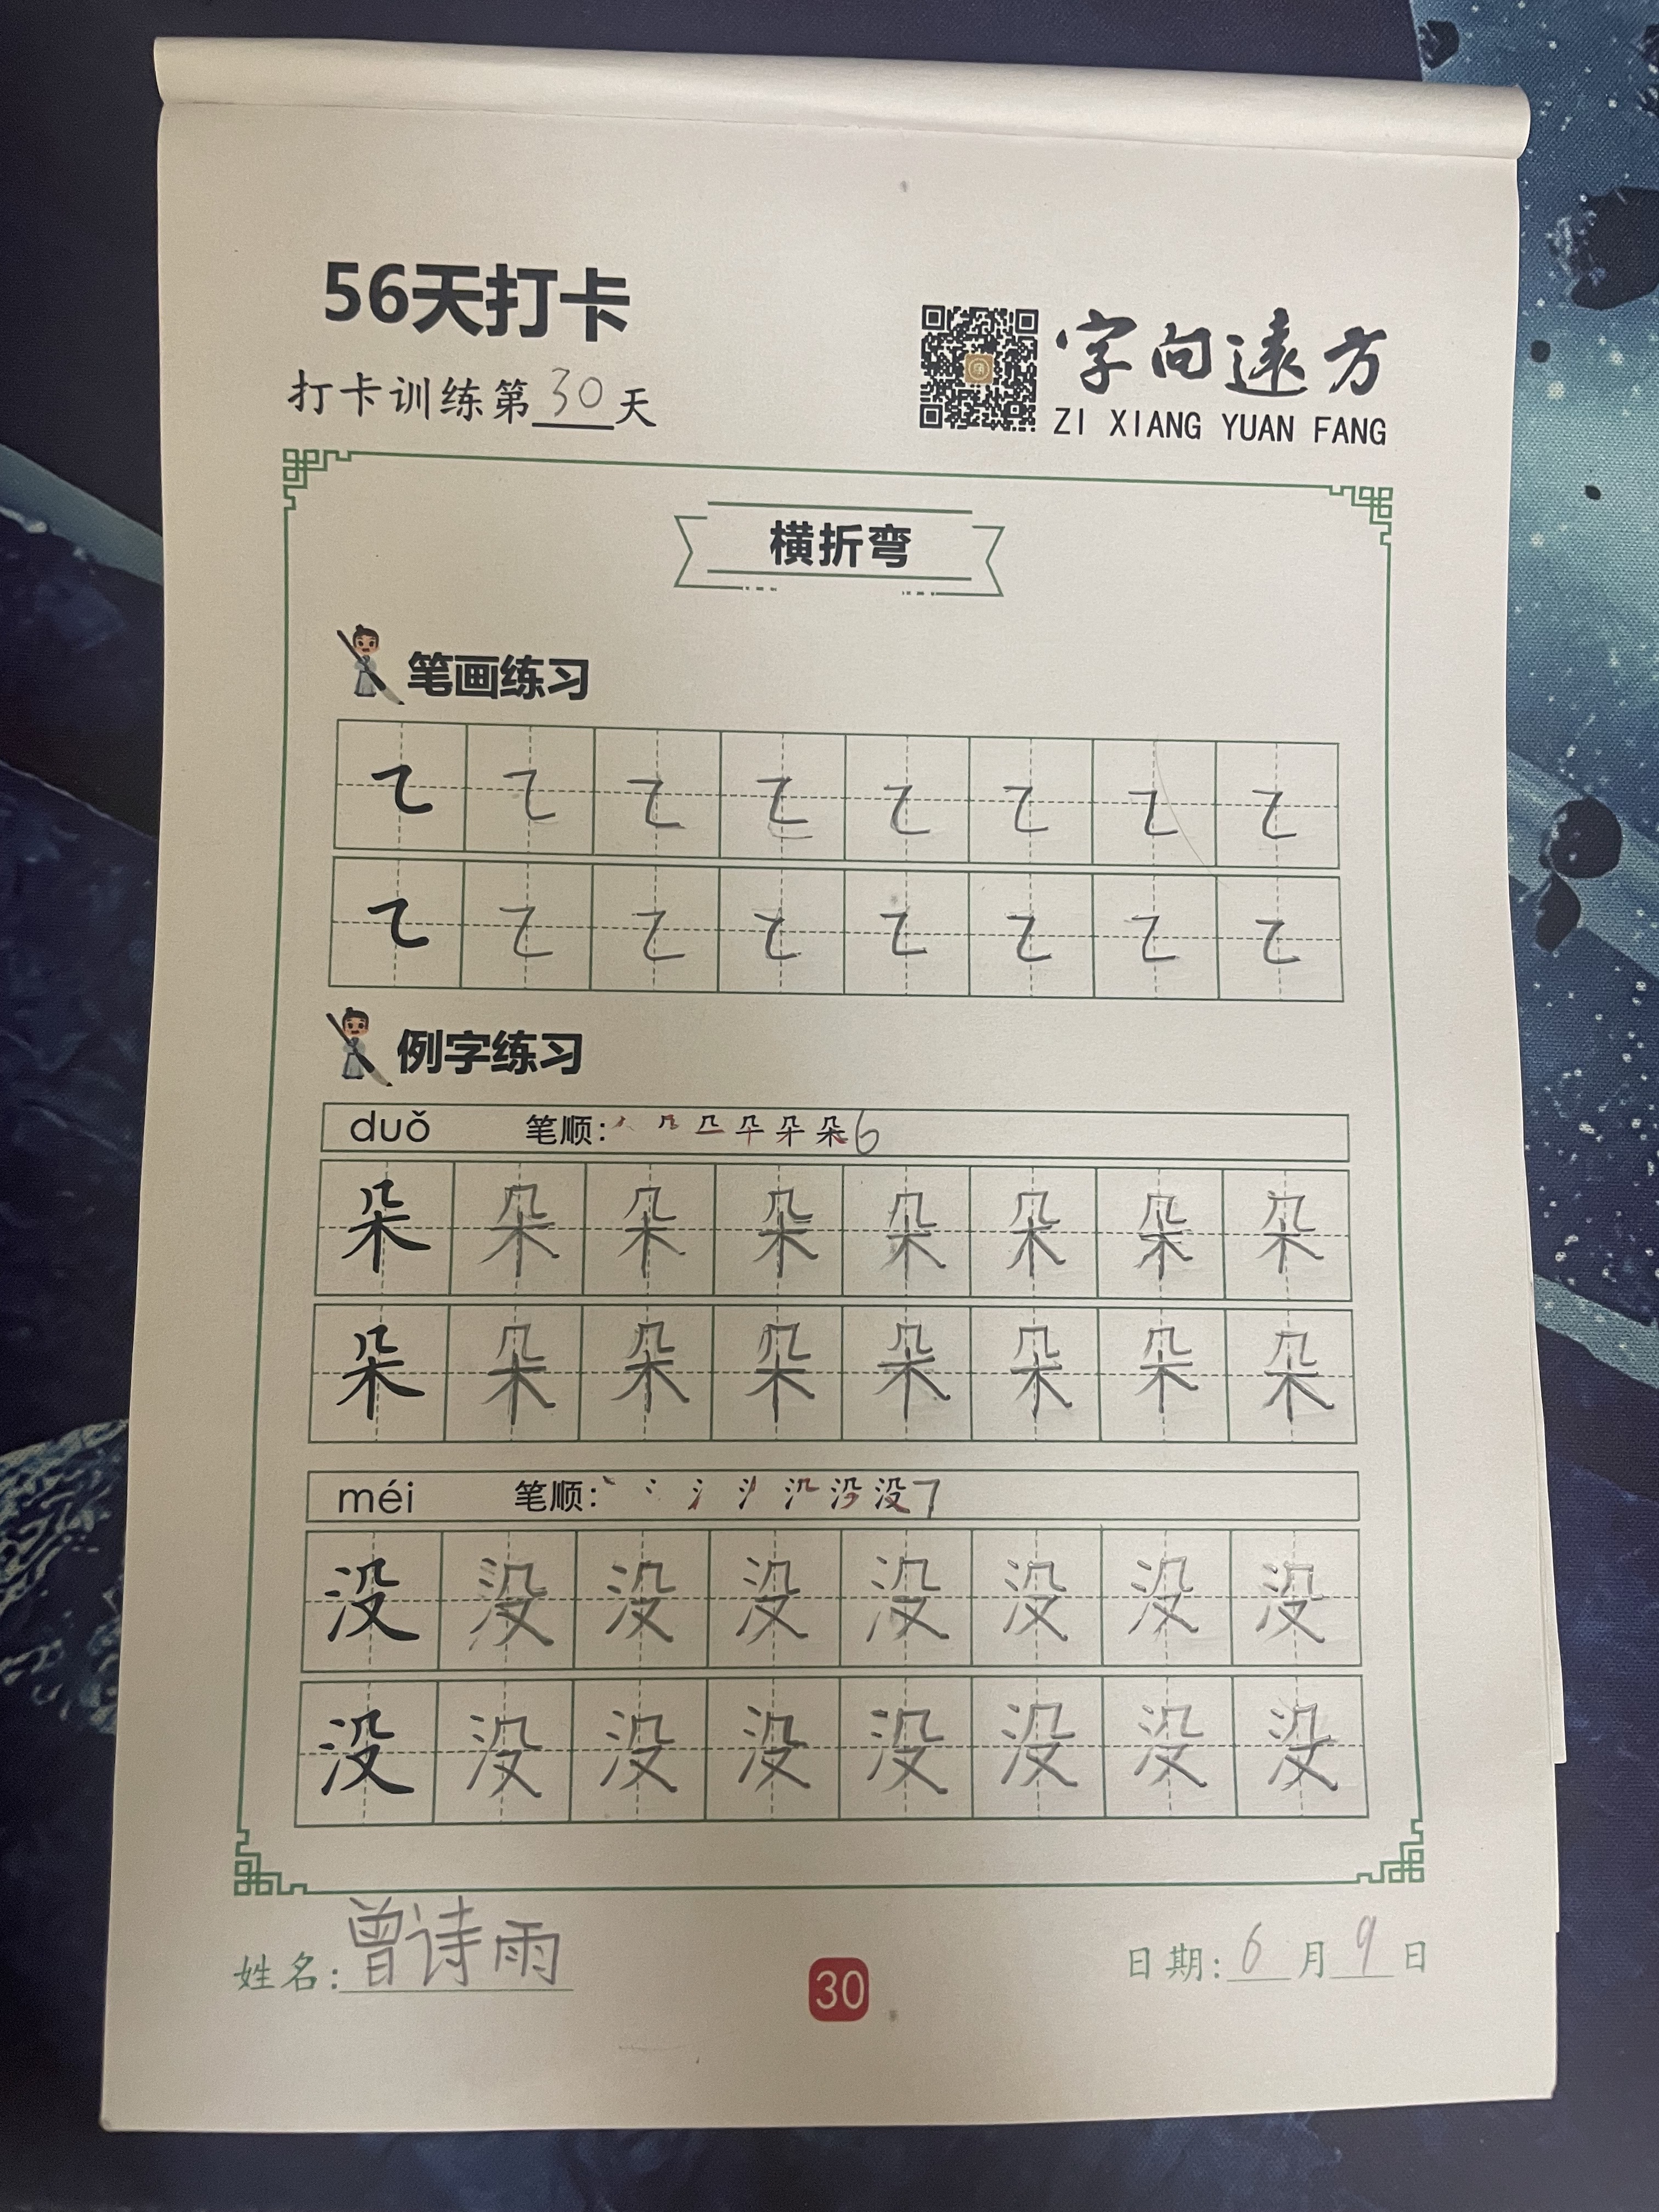 56天打卡
打卡训练第30天
字向遠方
ZI XIANG YUAN FANG
横折弯
笔画练习
㇍ ㇍ ㇍ ㇍ ㇍ ㇍ ㇍ ㇍
㇍ ㇍ ㇍ ㇍ ㇍ ㇍ ㇍ ㇍
例字练习
duǒ 笔顺: 朵6
朵 朵 朵 朵 朵 朵 朵 朵
朵 朵 朵 朵 朵 朵 朵 朵
méi 笔顺: 没7
没 没 没 没 没 没 没 没
没 没 没 没 没 没 没 没
姓名: 曾诗雨
30
日期: 6月9日